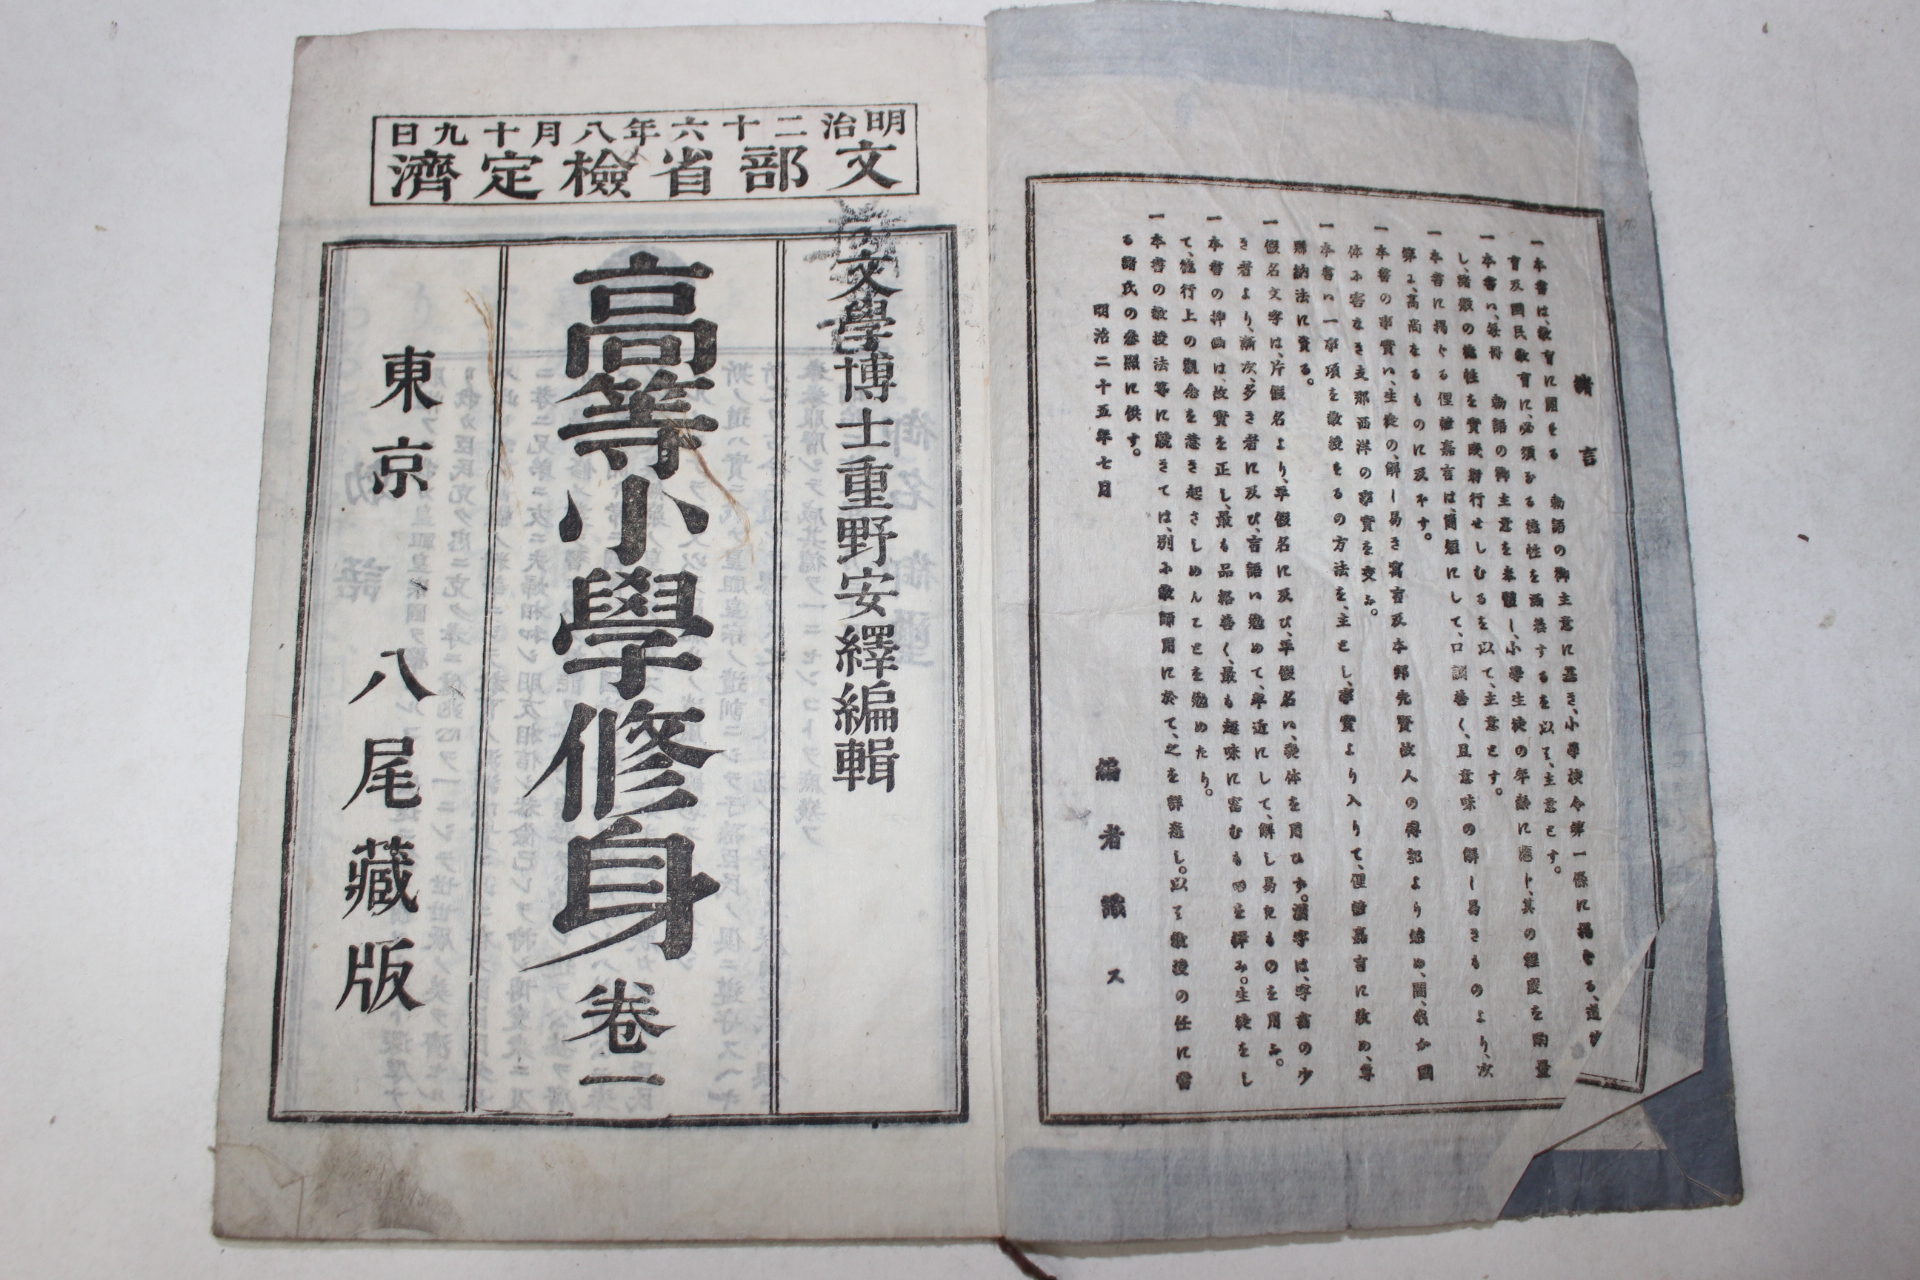 緒言
一本書は、教育に関する 勅語の御主意に基き、小學校令第一條に掲ぐる、道德
育及國民教育に、必須なる德性を涵養するを以て、主意とす。
一本書ハ、毎冊 勅語の御主意を奉體し、小學生徒の年齢に應じ、其の程度を酌量
し、諸般の德性を實踐躬行せしむるを以て、主意とす。
一本書に掲ぐる俚諺嘉言は、簡短にして、口調善く、且意味の解し易きものより、次
第に高尚なるものに及ぼす。
一本書の事實ハ、生徒の、解し易き寓言及本邦先賢故人の傳記より始め、間、我が國
体に害なき支那西洋の事實を交ふ。
一本書ハ一事項を教授するの方法を、主とし、事實より入りて、俚諺嘉言に收め、專
歸納法に資る。
一假名文字は、片假名より、平假名に及び、平假名ハ、變体を用ひず。漢字は、字畫の少
き者より、漸次、多き者に及び、言語ハ勉めて、卑近にして、解し易きものを用ふ。
一本書の挿画は、故實を正し、最も品格善く、最も趣味に富むものを擇ふ。生徒をし
て、德行上の觀念を惹き起さしめんことを勉めたり。
一本書の教授法等に就きては、別に教師用に於て、之を詳悉し。以て教授の任に當
る諸氏の參照に供す。
明治二十五年七月
編者識ス
明治二十六年八月十九日
文部省檢定濟
文學博士重野安繹編輯
高等小學修身 卷一
東京 八尾藏版